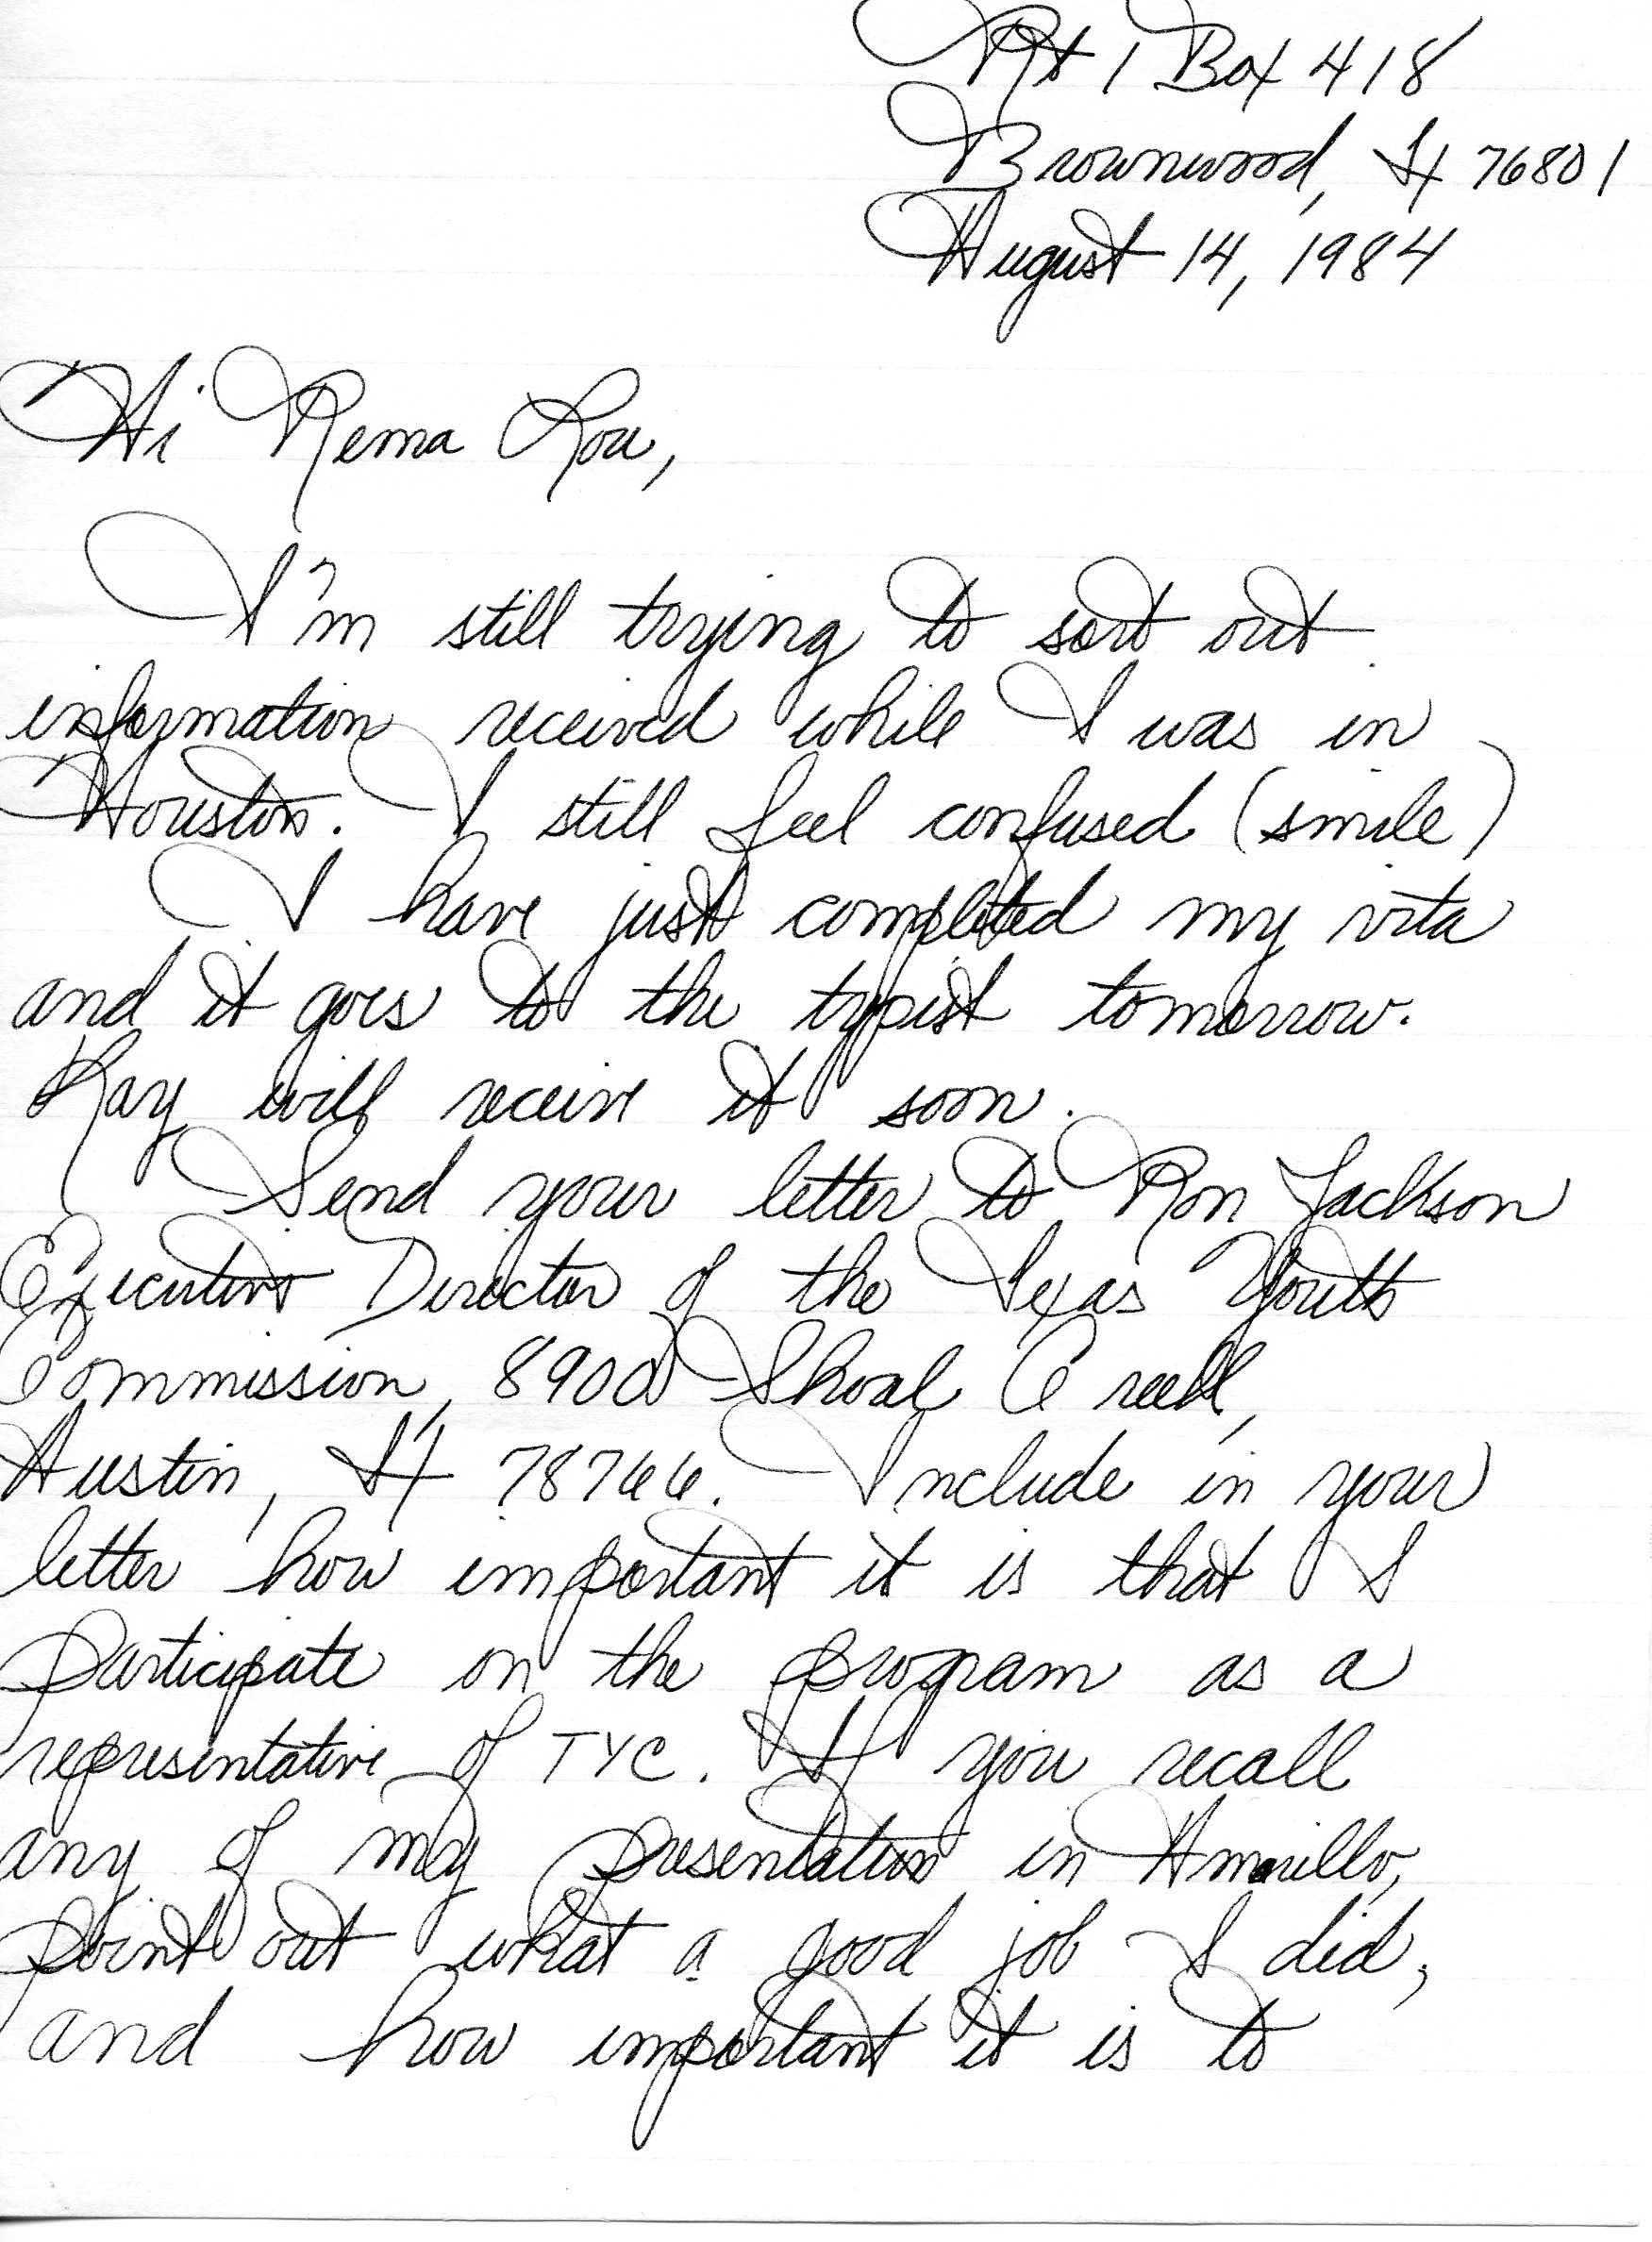 Rt 1 Box 418
Brownwood, Tx 76801
August 14, 1984
Hi Rema Lou,
I'm still trying to sort out
information received while I was in
Houston. I still feel confused (smile)
I have just completed my vita
and it goes to the typist tomorrow.
Kay will receive it soon.
Send your letter to Ron Jackson
Executive Director of the Texas Youth
Commission, 8900 Shoal Creek,
Austin, Tx 78766. Include in your
letter how important it is that I
participate on the program as a
representative of TYC. If you recall
any of my presentation in Amarillo,
point out what a good job I did,
and how important it is to